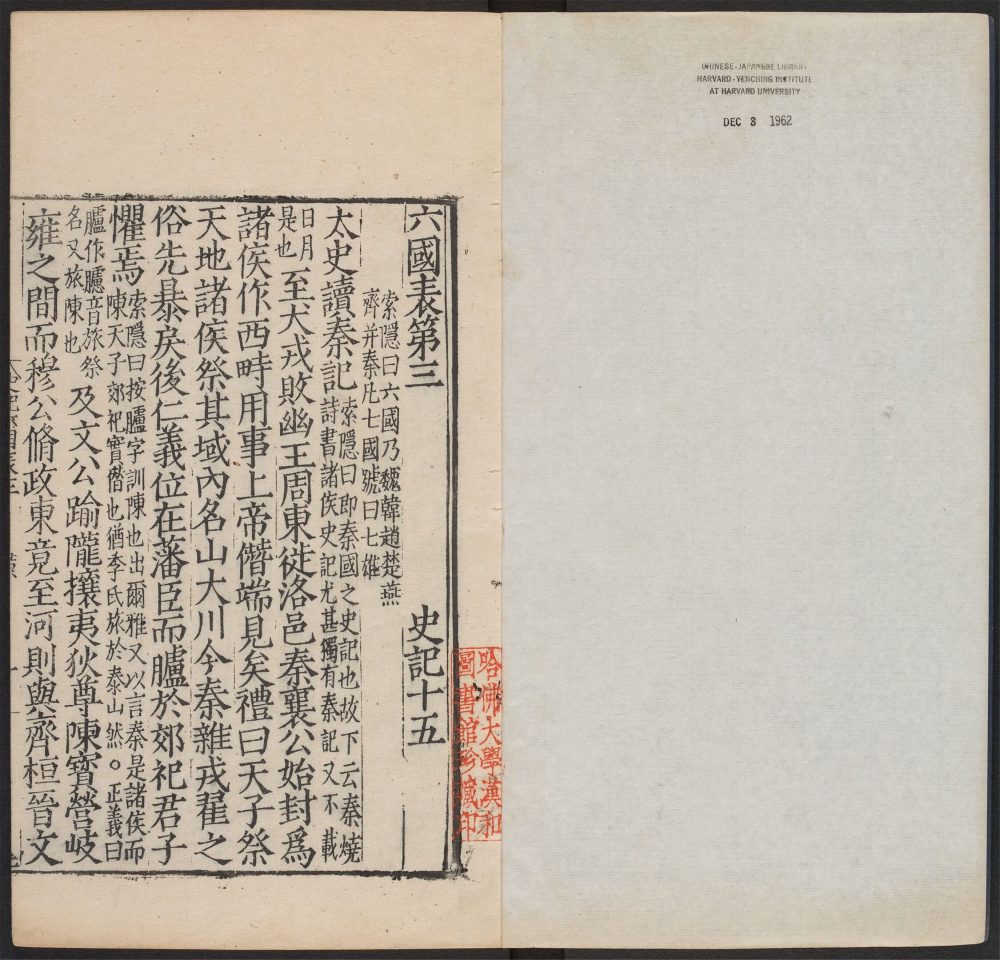 CHINESE-JAPANESE LIBRARY
HARVARD-YENCHING INSTITUTE
AT HARVARD UNIVERSITY
DEC 3 1962
哈佛大學漢和
圖書館珍藏印
六國表第三 史記十五
索隱曰六國乃魏韓趙楚燕
齊并秦凡七國號曰七雄
太史讀秦記
索隱曰即秦國之史記也故下云秦燒
詩書諸侯史記尤甚獨有秦記又不載
日月
是也
至犬戎敗幽王周東徙洛邑秦襄公始封爲
諸侯作西畤用事上帝僭端見矣禮曰天子祭
天地諸侯祭其域內名山大川今秦雜戎翟之
俗先暴戾後仁義位在藩臣而臚於郊祀君子
懼焉
索隱曰按臚字訓陳也出爾雅又以言秦是諸侯而
陳天子郊祀實僭也猶季氏旅於泰山然。正義曰
臚作臚音旅祭
名又旅陳也
及文公踰隴攘夷狄尊陳寶營岐
雍之間而穆公脩政東竟至河則與齊桓晉文